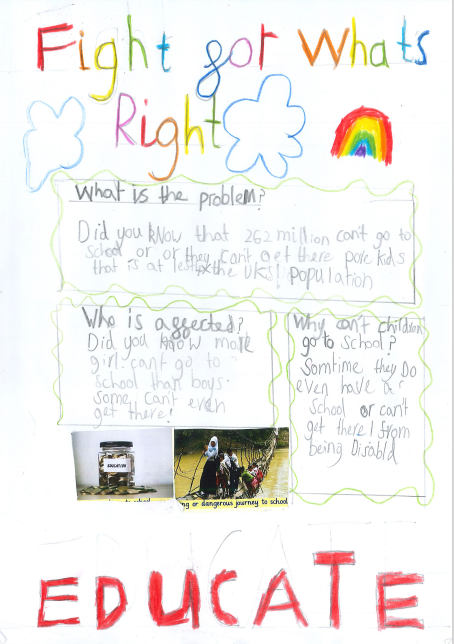 Fight for Whats
Right
What is the problem?
Did you know that 262 million can't go to
School or or they can't get there pore kids
that is at lest the UKS! population
Who is affected?
Did you know more
girl. can't go to
school than boys.
Some can't even
get there!
Why can't children
go to School?
Somtime they Do
even have a
School or can't
get there! from
being Disabld
EDUCATION
ng or dangerous journey to school
EDUCATE